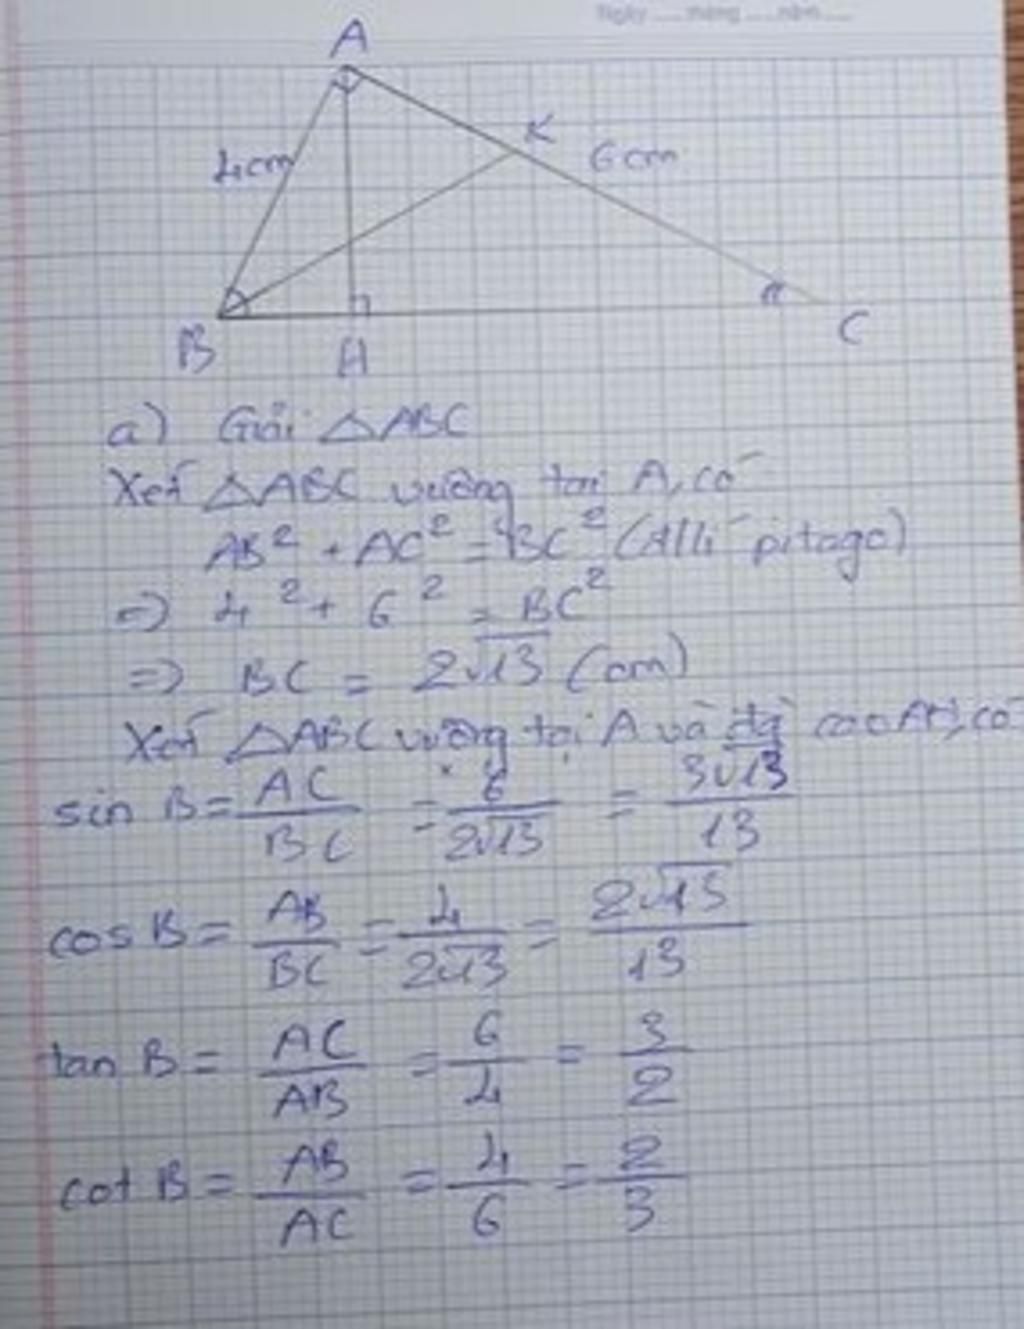 Ngày ..... tháng ..... năm .....
A
K
4cm
6cm
B
H
C
a) Giải △ABC
Xét △ABC vuông tại A, có
AB² + AC² = BC² (Đ/lí pitago)
=> 4² + 6² = BC²
=> BC = 2√13 (cm)
Xét △ABC vuông tại A và đg cao AH, có
sin B = AC/BC = 6/2√13 = 3√13/13
cos B = AB/BC = 4/2√13 = 2√13/13
tan B = AC/AB = 6/4 = 3/2
cot B = AB/AC = 4/6 = 2/3